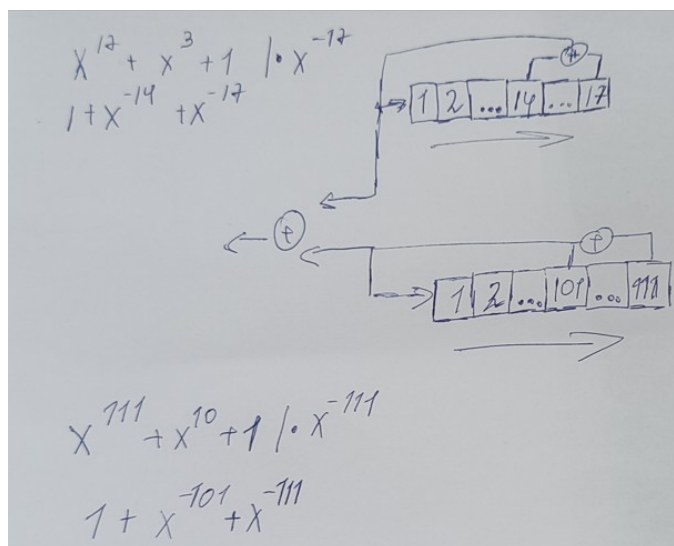 x¹⁷ + x³ + 1 | · x⁻¹⁷
1 + x⁻¹⁴ + x⁻¹⁷
+
1 2 ... 14 ... 17
+
+
1 2 ... 101 ... 111
x¹¹¹ + x¹⁰ + 1 | · x⁻¹¹¹
1 + x⁻¹⁰¹ + x⁻¹¹¹